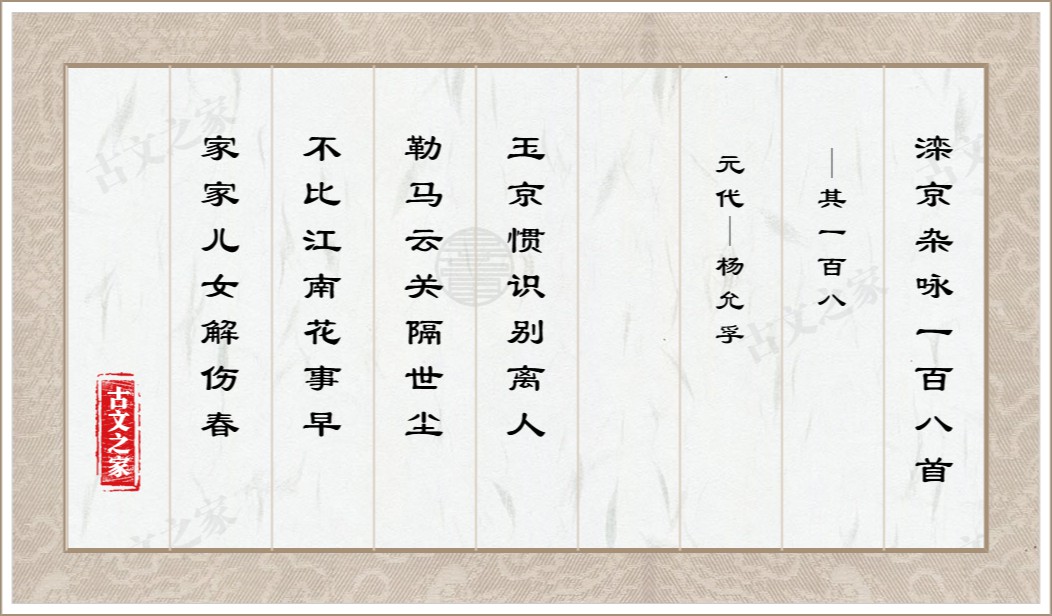 滦京杂咏一百八首
—其一百八
元代—杨允孚
玉京惯识别离人
勒马云关隔世尘
不比江南花事早
家家儿女解伤春
古文之家
古文之家
古文之家
古文之家